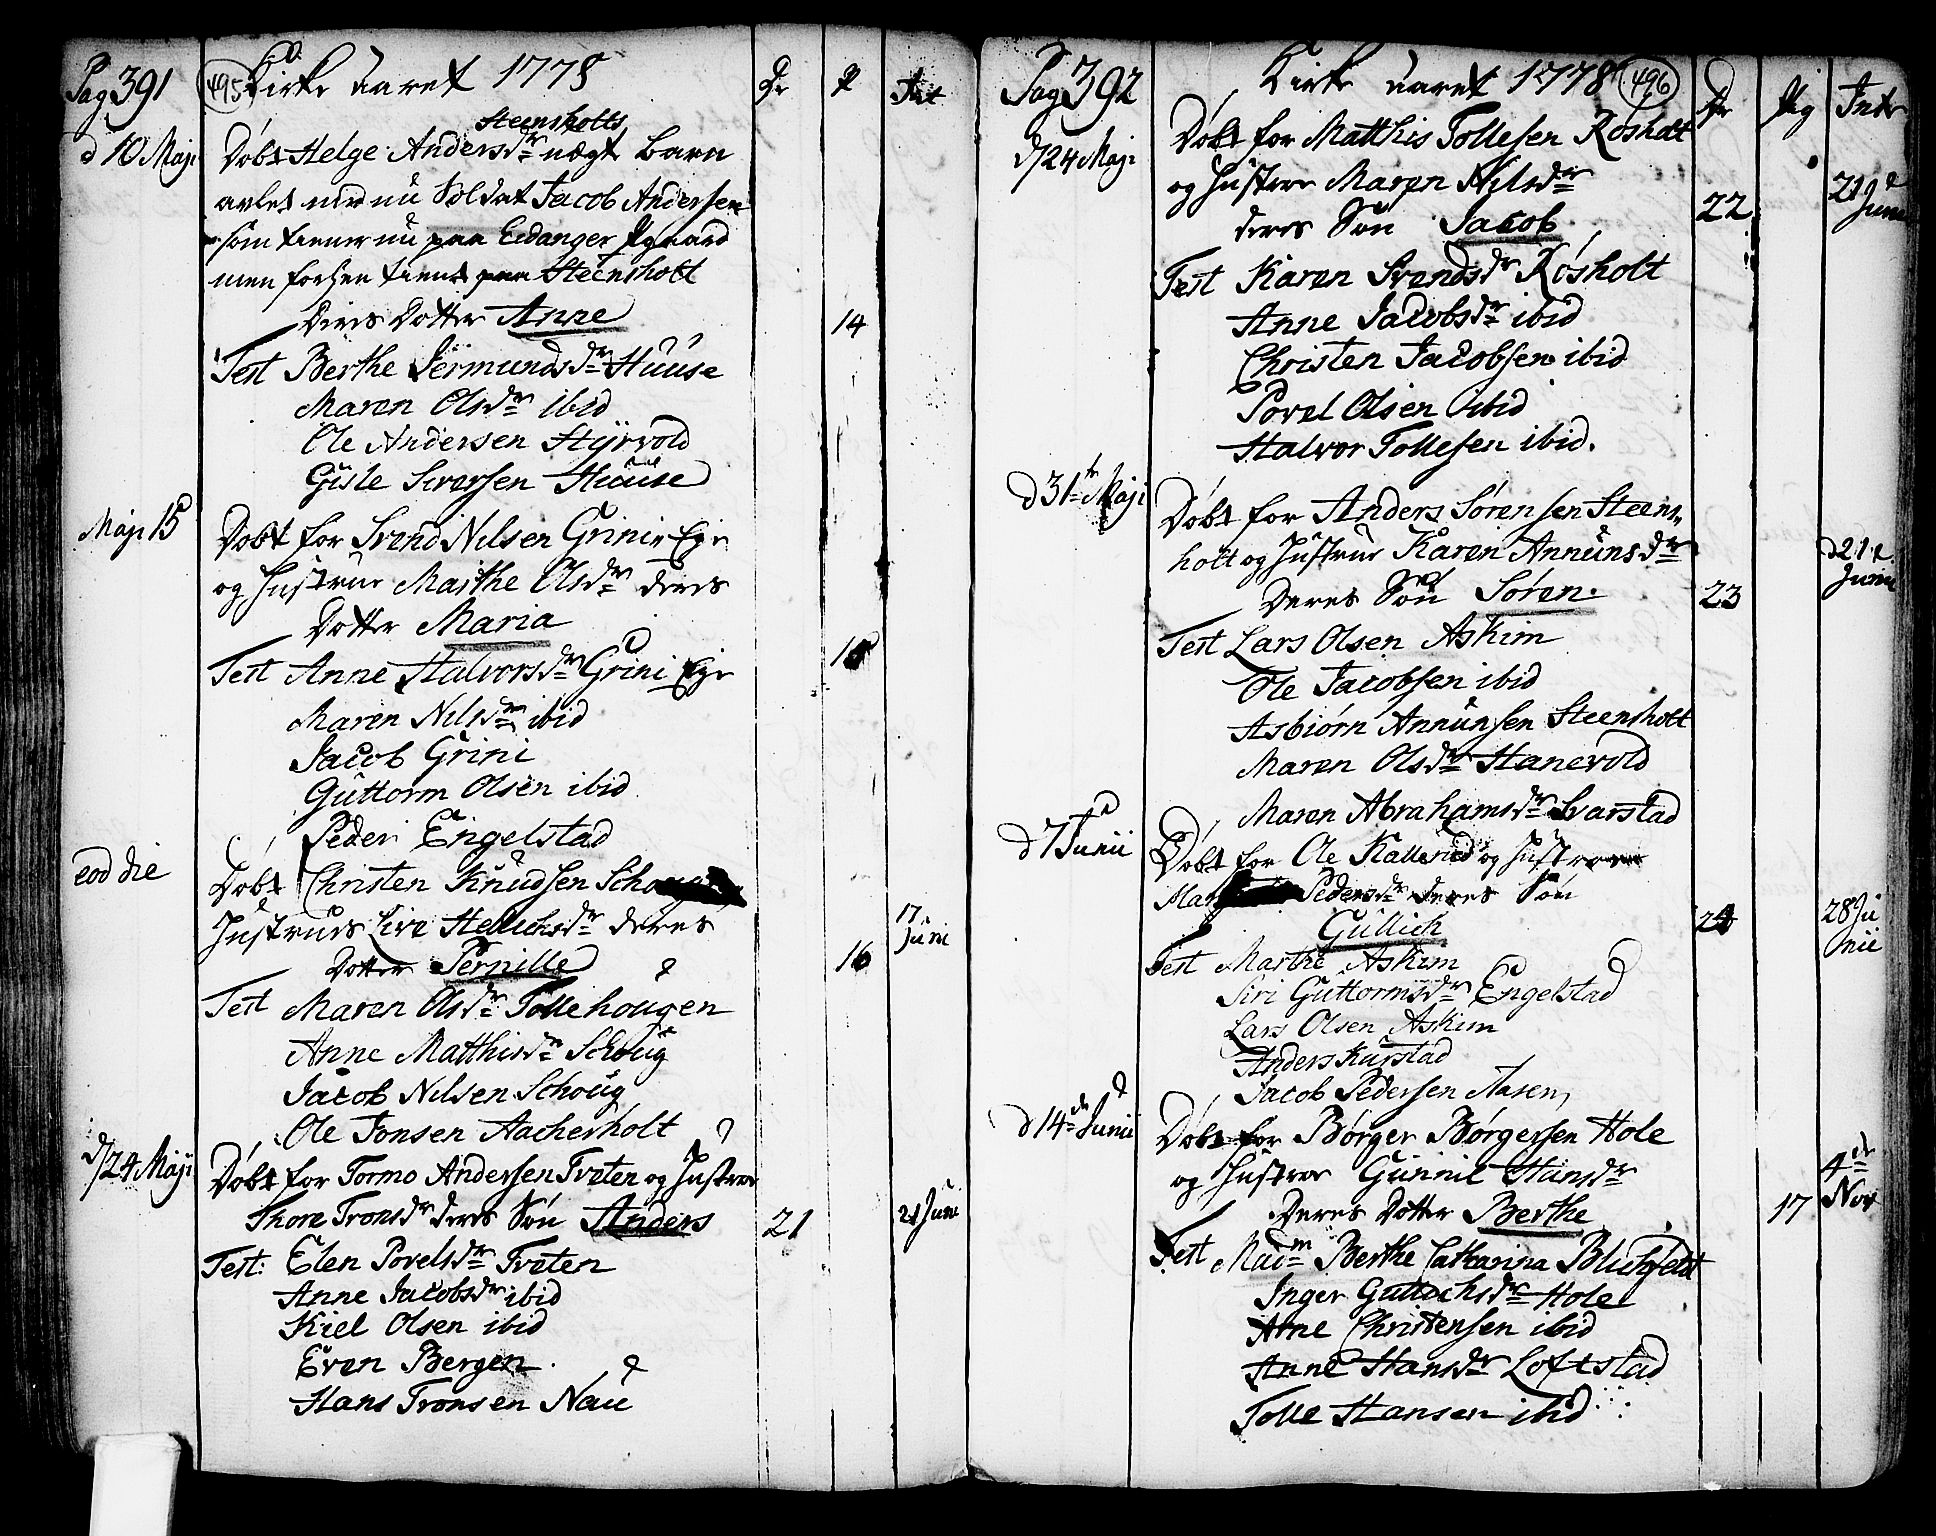 Pag 391
495
Kirke Aaret 1778
Dr
P
Int
d 10 Maji
Steensholts
Døbt Helge Andersdr uægt Barn
avlet med nu Soldat Jacob Andersen
som tiener nu paa Eidanger Pgaard
men forhen tient paa Steensholt
Deres Dotter Anne
14
Test Berthe Jermundsdr Huuse
Maren Olsdr ibid
Ole Andersen Styrvold
Gisle Iversen Huuse
Maji 15
Døbt for Svend Nilsen Grini Eje
og Hustrue Marthe Olsdr deres
Dotter Maria
15
Test Anne Halvorsdr Grini Eje
Maren Nilsdr ibid
Jacob Grini
Guttorm Olsen ibid
Peder Engelstad
eod die
Døbt Christen Knudsen
Hustrues Live Hellichsdr deres
Dotter Pernille
16
17 Juni
Test Maren Olsdr Tollehougen
Anne Matthisdr Schoug
Jacob Nilsen Schoug
Ole Jonsen Aacherholt
d/24 Maji
Døbt for Tormo Andersen Tveten og Hustroe
Thore Tronsdr deres Søn Anders
21
21 Juni
Test: Elen Povelsdr Tveten
Anne Jacobsdr ibid
Kiel Olsen ibid
Even Bergen
Hans Tronsen Nau
Pag 392
Kirke Aaret 1778
496
Dr
Pig
Intr
d/24 Maji
Døbt for Matthis Tollefsen Røsholt
og Hustroe Maren Nilsdr
deres Søn Jacob
22
21 Juni
Test Karen Svendsdr Røsholt
Anne Jacobsdr ibid
Christen Jacobsen ibid
Povel Olsen ibid
Halvor Tollefsen ibid.
d 31te Maji
Døbt for Anders Sørensen Steens-
holt og Hustrue Karen Annunsdr
Deres Søn Søren.
23
d 21 Junii
Test Lars Olsen Askim
Ole Jacobsen ibid
Asbiørn Annunsen Steensholt
Maren Olsdr Hanevold
Maren Abrahamsdr Svarstad
d 7 Junii
Døbt for Ole Kallerud og Hustroe
Pedersdr deres Søn
Gullich
24
28 Ju
nii
Test Marthe Askim
Siri Guttormsdr Engelstad
Lars Olsen Askim
Anders Kurstad
Jacob Pedersen Aasen
d 14de Junii
Døbt for Børger Børgersen Hole
og Hustroe Gunnil Hansdr
Deres Dotter Berthe
17
4de
Nov
Test Madm Berthe Catharina Blichfeldt
Inger Guttochsdr Hole
Arne Christensen ibid
Anne Hansdr Loftstad
Tolle Hansen ibid